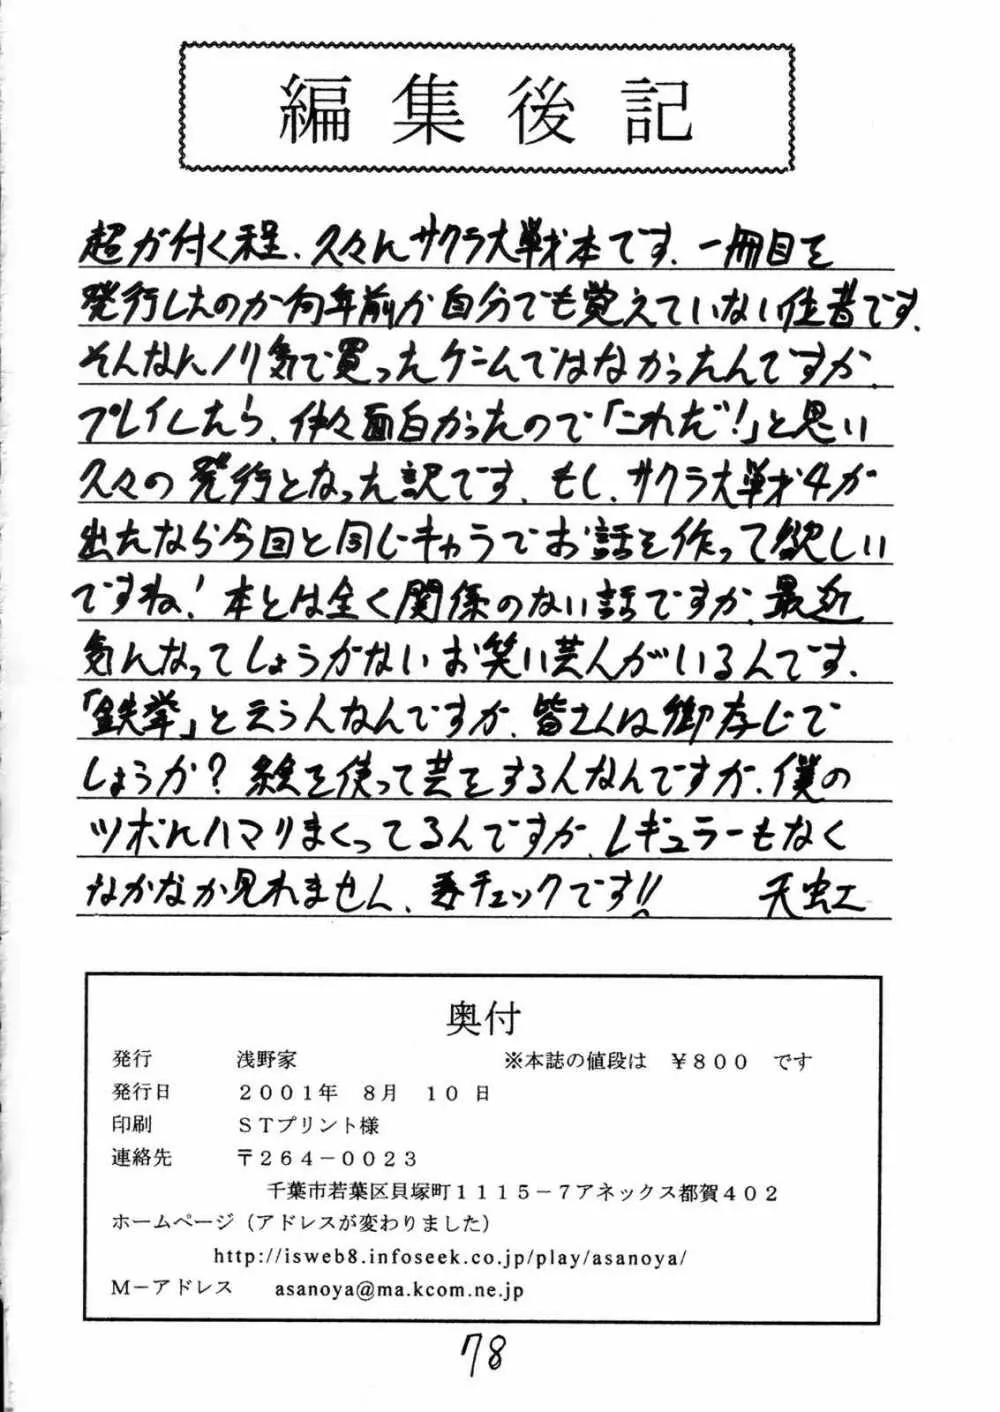 編集後記
超が付く程、久々にサクラ大戦本です。一冊目を
発行したのが何年前か自分でも覚えていない作者です。
そんなにノリ気で買ったゲームではなかったんですが、
プレイしたら、伜々面白かったので「これだ!」と思い
久々の発行となった訳です。もし、サクラ大戦4が
出たなら今回と同じキャラでお話を作って欲しい
ですね! 本とは全く関係のない話ですが、最近
気になってしょうがないお笑い芸人がいるんです。
「鉄拳」と云う人なんですが、皆さんは御存じで
しょうか? 絵を使って芸をする人なんですが、僕の
ツボにハマりまくってるんですが、レギュラーもなく
なかなか見れません、要チェックです!! 天虫工
奥付
発行 浅野家 ※本誌の値段は ¥800 です
発行日 2001年 8月 10日
印刷 STプリント様
連絡先 〒264-0023
千葉市若葉区貝塚町1115-7アネックス都賀402
ホームページ(アドレスが変わりました)
http://isweb8.infoseek.co.jp/play/asanoya/
M-アドレス asanoya@ma.kcom.ne.jp
78